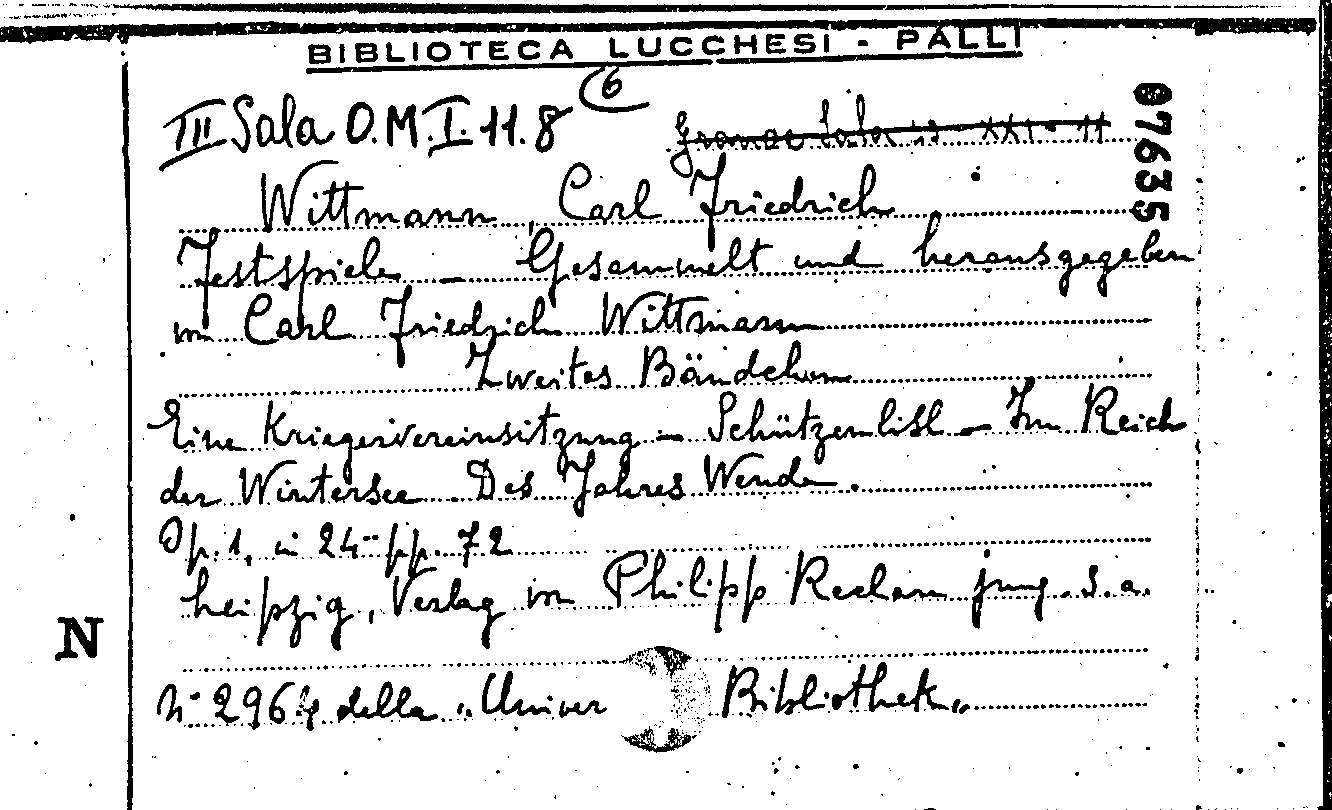 BIBLIOTECA LUCCHESI - PALLI
III Sala O.M.I.11.8 (6
Grande Sala 13 - XXI - 11
07635
Wittmann, Carl Friedrich
Festspiele - Gesammelt und herausgegeben
von Carl Friedrich Wittmann
Zweites Bändchen
Eine Kriegervereinsitzung - Schützenlisl - Im Reich
der Wintersee. Des Jahres Wende.
Op. 1, in 24° pp. 72
Leipzig, Verlag von Philipp Reclam jung. s.a.
N
N° 2964 della "Univer Bibliothek"